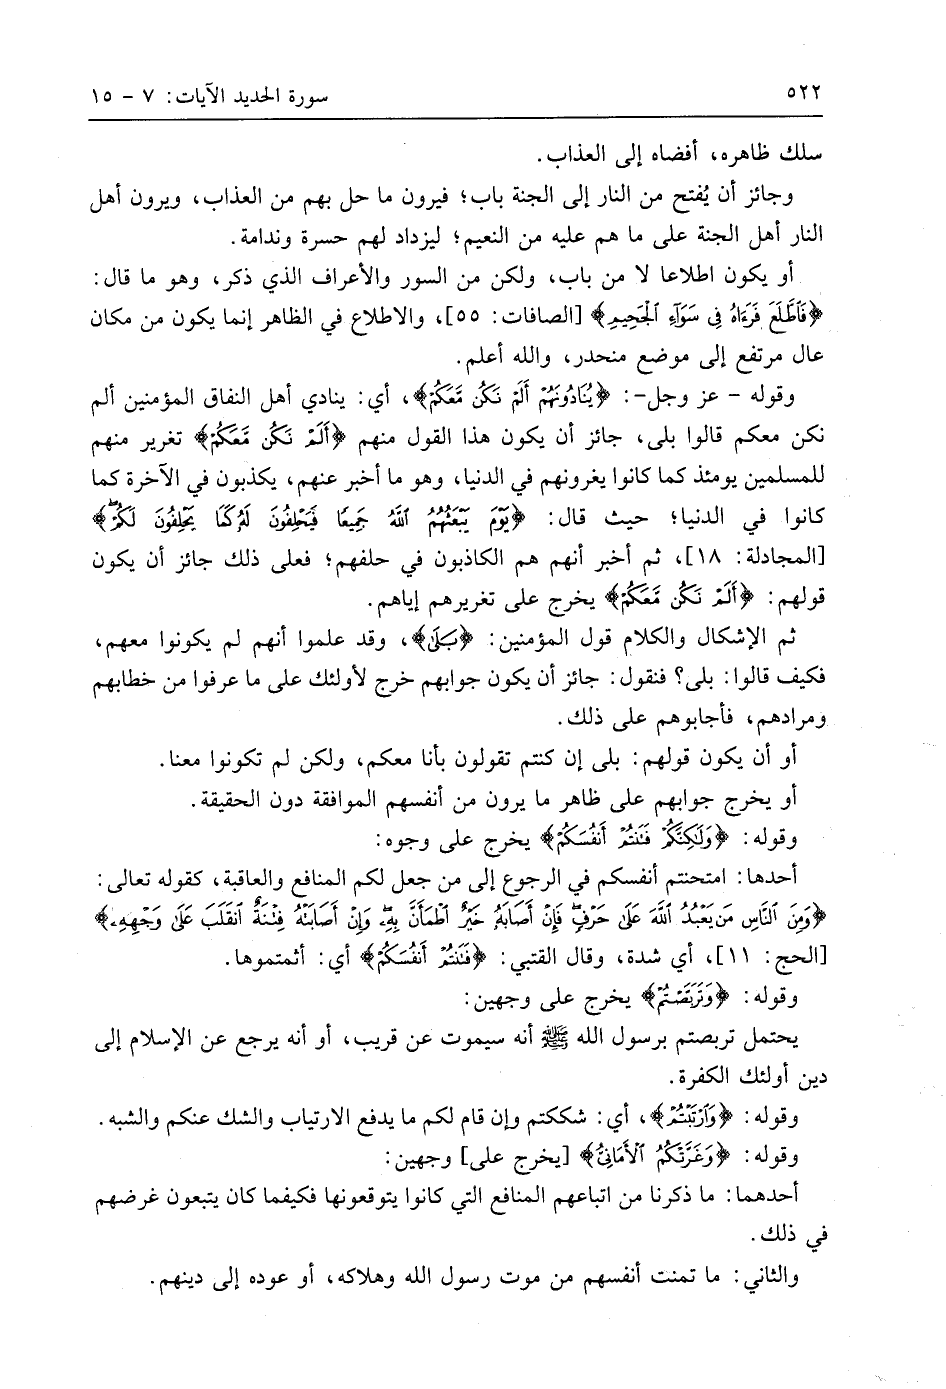 ٥٢٢
سورة الحديد الآيات: ٧ - ١٥
سلك ظاهره، أفضاه إلى العذاب.
وجائز أن يُفتح من النار إلى الجنة باب؛ فيرون ما حل بهم من العذاب، ويرون أهل
النار أهل الجنة على ما هم عليه من النعيم؛ ليزداد لهم حسرة وندامة.
أو يكون اطلاعا لا من باب، ولكن من السور والأعراف الذي ذكر، وهو ما قال:
﴿فَٱطَّلَعَ فَرَءَاهُ فِى سَوَآءِ ٱلْجَحِيمِ﴾ [الصافات: ٥٥]، والاطلاع في الظاهر إنما يكون من مكان
عال مرتفع إلى موضع منحدر، والله أعلم.
وقوله - عز وجل-: ﴿يُنَادُونَهُمْ أَلَمْ نَكُن مَّعَكُمْ﴾، أي: ينادي أهل النفاق المؤمنين ألم
نكن معكم قالوا بلى، جائز أن يكون هذا القول منهم ﴿أَلَمْ نَكُن مَّعَكُمْ﴾ تغرير منهم
للمسلمين يومئذ كما كانوا يغرونهم في الدنيا، وهو ما أخبر عنهم، يكذبون في الآخرة كما
كانوا في الدنيا؛ حيث قال: ﴿يَوْمَ يَبْعَثُهُمُ ٱللَّهُ جَمِيعًا فَيَحْلِفُونَ لَهُۥ كَمَا يَحْلِفُونَ لَكُمْۖ﴾
[المجادلة: ١٨]، ثم أخبر أنهم هم الكاذبون في حلفهم؛ فعلى ذلك جائز أن يكون
قولهم: ﴿أَلَمْ نَكُن مَّعَكُمْ﴾ يخرج على تغريرهم إياهم.
ثم الإشكال والكلام قول المؤمنين: ﴿بَلَىٰ﴾، وقد علموا أنهم لم يكونوا معهم،
فكيف قالوا: بلى؟ فنقول: جائز أن يكون جوابهم خرج لأولئك على ما عرفوا من خطابهم
ومرادهم، فأجابوهم على ذلك.
أو أن يكون قولهم: بلى إن كنتم تقولون بأنا معكم، ولكن لم تكونوا معنا.
أو يخرج جوابهم على ظاهر ما يرون من أنفسهم الموافقة دون الحقيقة.
وقوله: ﴿وَلَٰكِنَّكُمْ فَتَنتُمْ أَنفُسَكُمْ﴾ يخرج على وجوه:
أحدها: امتحنتم أنفسكم في الرجوع إلى من جعل لكم المنافع والعاقبة، كقوله تعالى:
﴿وَمِنَ ٱلنَّاسِ مَن يَعْبُدُ ٱللَّهَ عَلَىٰ حَرْفٍۖ فَإِنْ أَصَابَهُۥ خَيْرٌ ٱطْمَأَنَّ بِهِۦۖ وَإِنْ أَصَابَتْهُ فِتْنَةٌ ٱنقَلَبَ عَلَىٰ وَجْهِهِۦ﴾
[الحج: ١١]، أي شدة، وقال القتبي: ﴿فَتَنتُمْ أَنفُسَكُمْ﴾ أي: أثمتموها.
وقوله: ﴿وَتَرَبَّصْتُمْ﴾ يخرج على وجهين:
يحتمل تربصتم برسول الله ﷺ أنه سيموت عن قريب، أو أنه يرجع عن الإسلام إلى
دين أولئك الكفرة.
وقوله: ﴿وَٱرْتَبْتُمْ﴾، أي: شككتم وإن قام لكم ما يدفع الارتياب والشك عنكم والشبه.
وقوله: ﴿وَغَرَّتْكُمُ ٱلْأَمَانِىُّ﴾ [يخرج على] وجهين:
أحدهما: ما ذكرنا من اتباعهم المنافع التي كانوا يتوقعونها فكيفما كان يتبعون غرضهم
في ذلك.
والثاني: ما تمنت أنفسهم من موت رسول الله وهلاكه، أو عوده إلى دينهم.